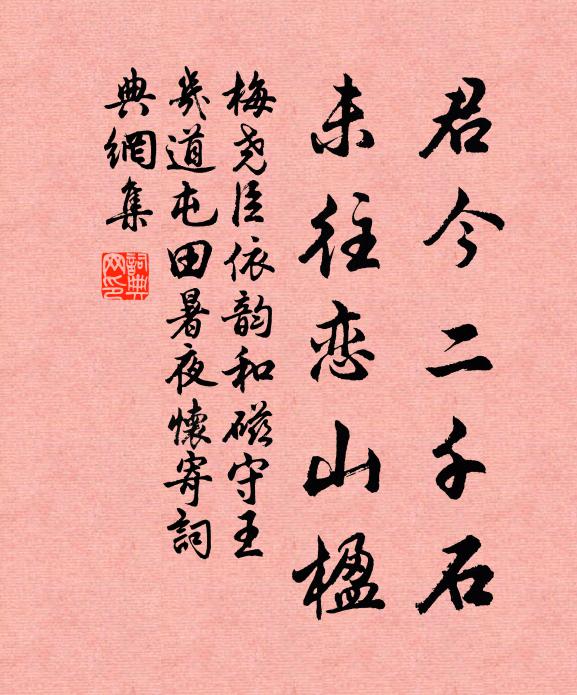 君今二千石
未往恋山楹
梅尧臣依韵和磁守王
几道屯田暑夜懷寄詞
典網集
詞典网印